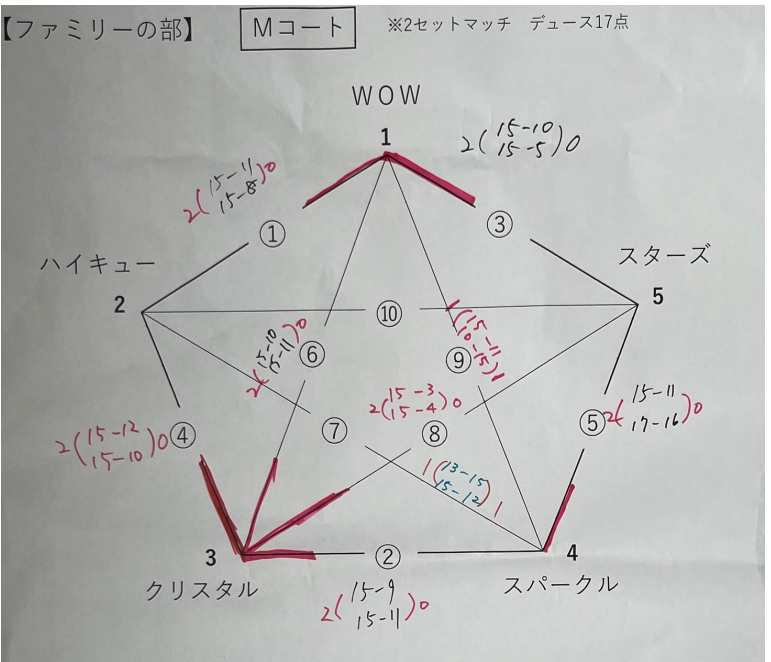 【ファミリーの部】 Mコート ※2セットマッチ デュース17点
WOW
1
2(15-10 15-5)0
2(15-11 15-8)0
① ③
ハイキュー
2
スターズ
5
⑩
2(15-10 15-11)0
⑥
⑨
1(15-11 10-15)1
2(15-3 15-4)0
⑤
2(15-11 17-16)0
2(15-12 15-10)0
④
⑦
⑧
1(13-15 15-12)1
3
クリスタル
②
4
スパークル
2(15-9 15-11)0